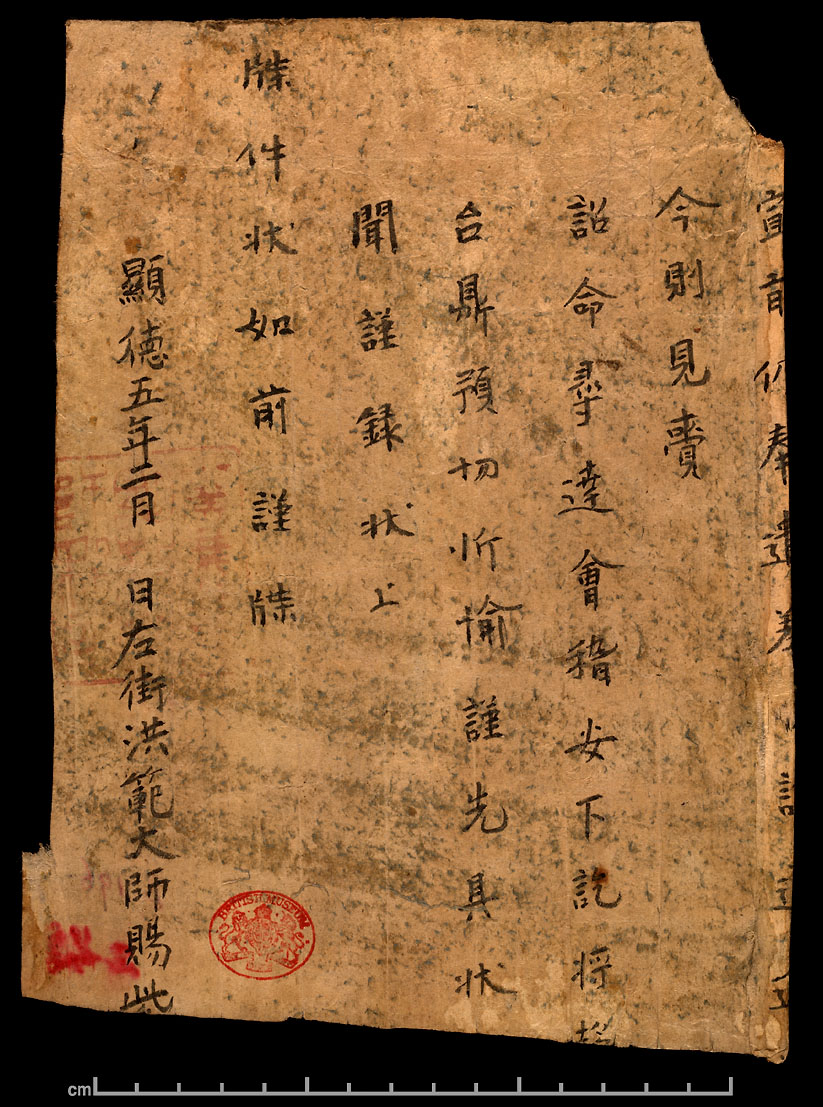 宣前仍奉
今則見賷
詔命尋達會稽安下訖将
台鼎預切忻愉謹先具状
聞謹録状上
牒件状如前謹牒
顯德五年二月　日左街洪範大師賜紫
BRITISH MUSEUM
cm